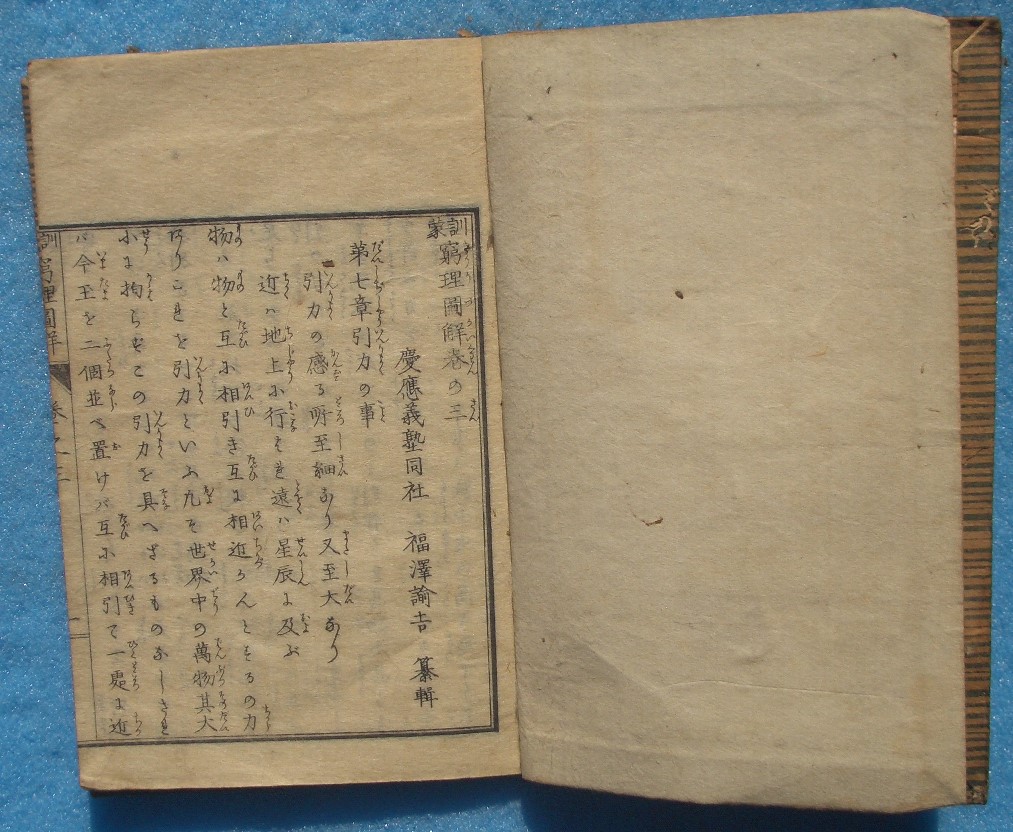 訓蒙窮理圖解巻の三
慶應義塾同社 福澤諭吉 纂輯
第七章引力の事
引力の感る所至細あり又至大あり
近ハ地上に行ハれ遠ハ星辰に及ぶ
物ハ物と互に相引き互に相近づんとするの力
ありこれを引力といふ凡そ世界中の萬物其大
小に拘らずこの引力を具へざるものなしされ
バ今玉を二個並べ置けバ互に相引て一處に近
訓蒙窮理圖解 巻之三 一